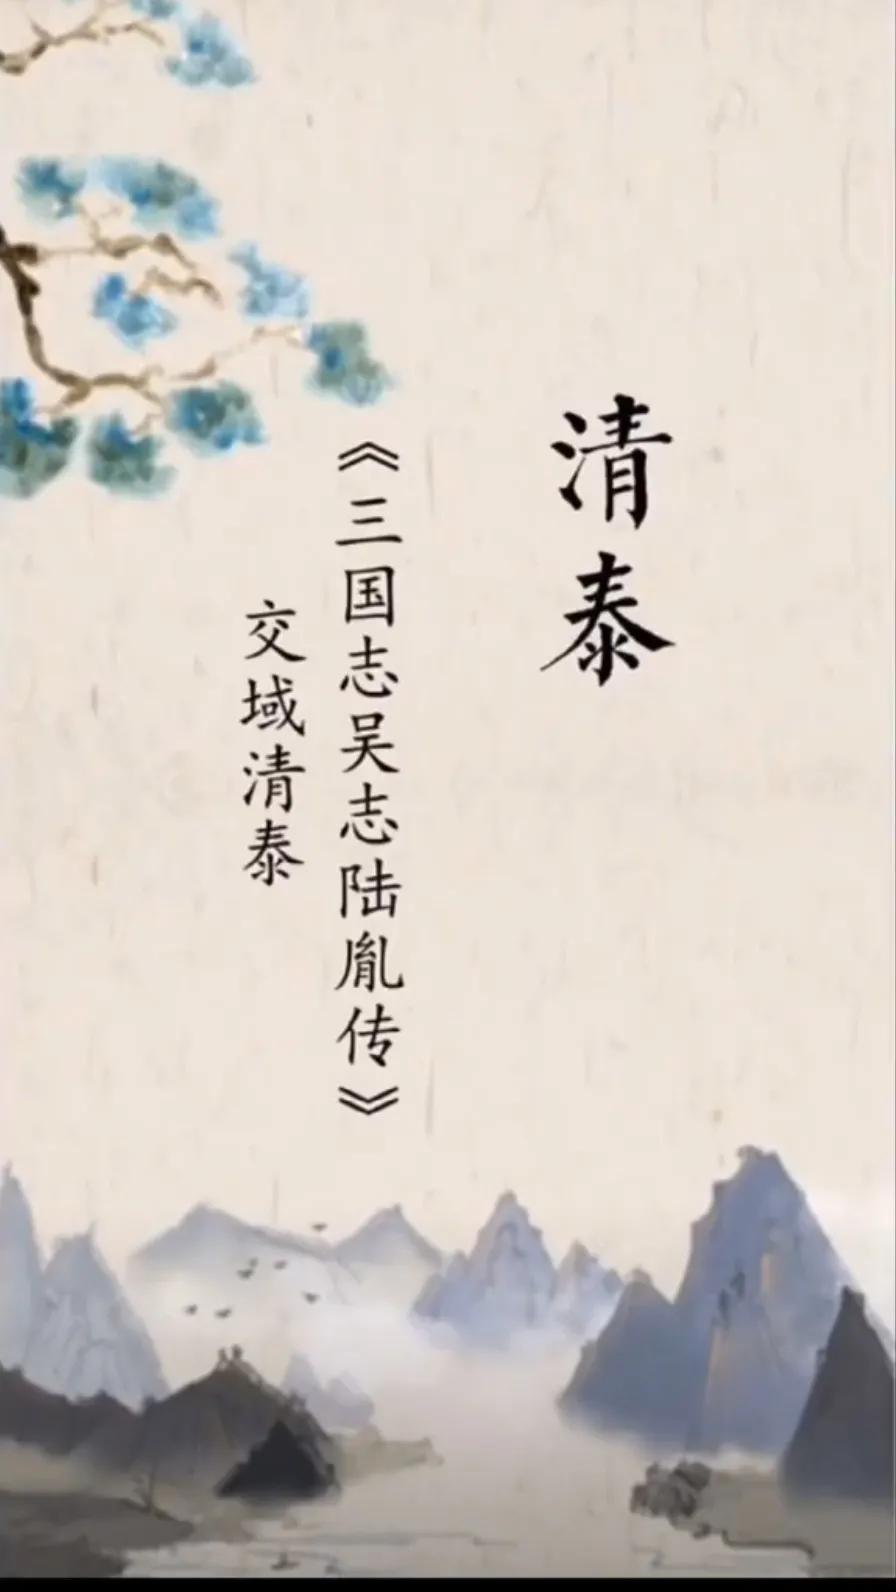 清泰
《三国志吴志陆胤传》
交域清泰